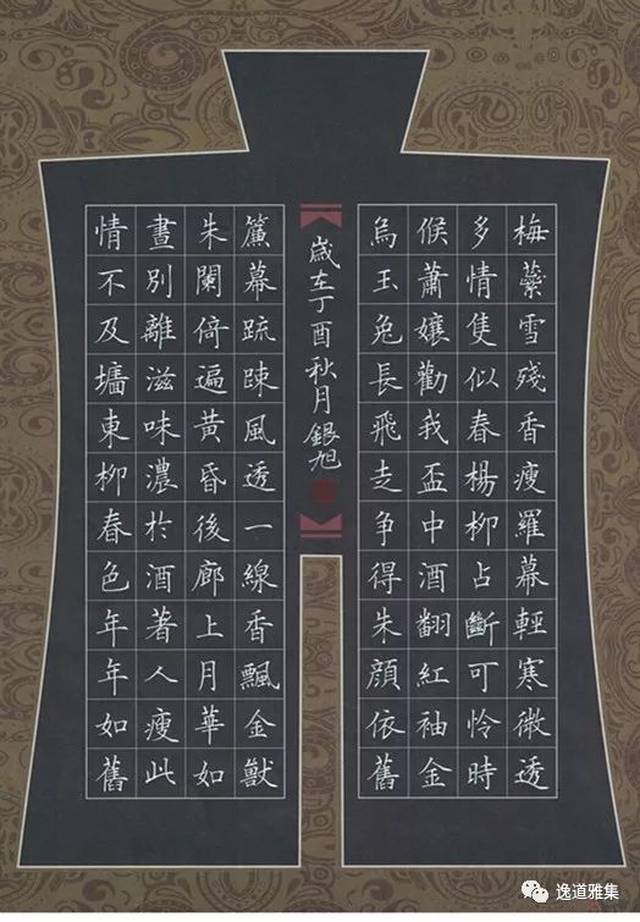 梅蘂雪殘香瘦羅幕輕寒微透
多情隻似春楊柳占斷可怜時
候蕭孃勸我盃中酒翻紅袖金
烏玉兔長飛走争得朱顔依舊
歲在丁酉秋月銀旭
簾幕疏疎風透一線香飄金獸
朱闌倚遍黄昏後廊上月華如
晝別離滋味濃於酒著人瘦此
情不及墻東柳春色年年如舊
逸道雅集